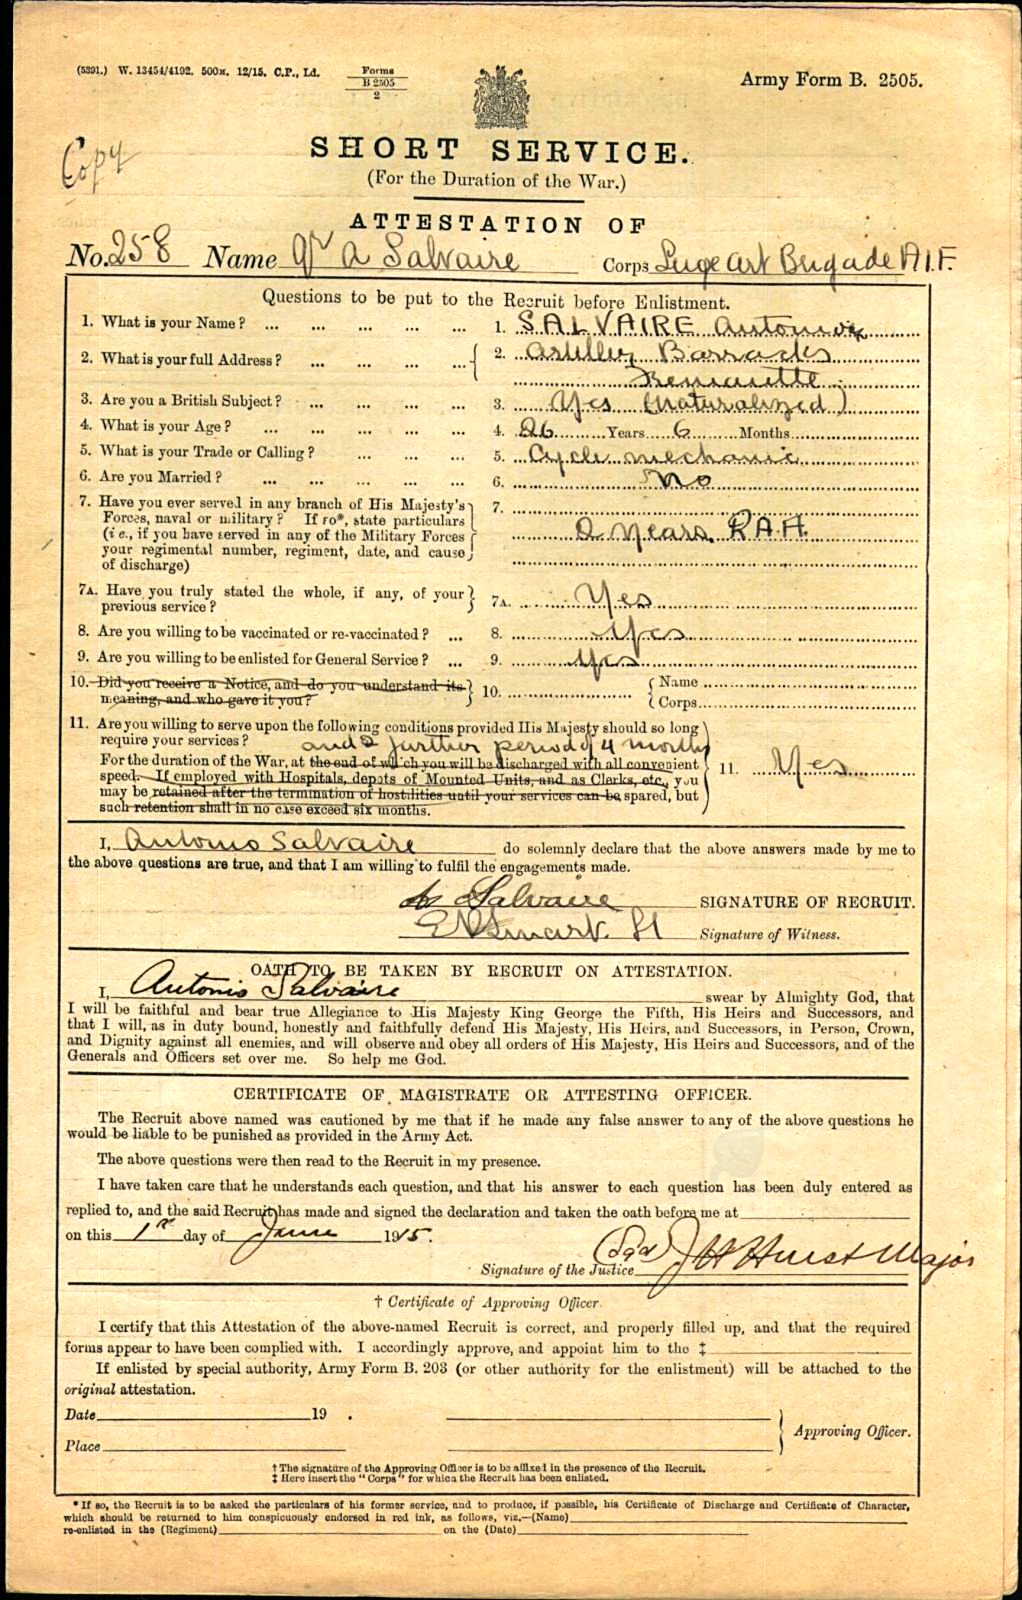 (5391.) W. 13454/4192. 500M. 12/15. C.P., Ld. Forms B 2505 2 Army Form B. 2505.
Copy
SHORT SERVICE.
(For the Duration of the War.)
ATTESTATION OF
No. 258 Name Gr A Salvaire Corps Siege Art Brigade A.I.F.
Questions to be put to the Recruit before Enlistment.
1. What is your Name? ... ... ... ... ... 1. SALVAIRE Antonio
2. What is your full Address? ... ... ... ... 2. Artillery Barracks
Fremantle
3. Are you a British Subject? ... ... ... ... 3. Yes (Naturalized)
4. What is your Age? ... ... ... ... ... 4. 26 Years 6 Months
5. What is your Trade or Calling? ... ... ... 5. Cycle mechanic
6. Are you Married? ... ... ... ... ... 6. No
7. Have you ever served in any branch of His Majesty's 7.
Forces, naval or military? If so*, state particulars
(i e., if you have served in any of the Military Forces 2 years. R.A.A.
your regimental number, regiment, date, and cause
of discharge)
7A. Have you truly stated the whole, if any, of your 7A. Yes
previous service?
8. Are you willing to be vaccinated or re-vaccinated? ... 8. Yes
9. Are you willing to be enlisted for General Service? ... 9. Yes
10. Did you receive a Notice, and do you understand its 10. Name
meaning, and who gave it you? Corps
11. Are you willing to serve upon the following conditions provided His Majesty should so long
require your services? and a further period of 4 months
For the duration of the War, at the end of which you will be discharged with all convenient 11. Yes
speed. If employed with Hospitals, depots of Mounted Units, and as Clerks, etc., you
may be retained after the termination of hostilities until your services can be spared, but
such retention shall in no case exceed six months.
I, Antonio Salvaire do solemnly declare that the above answers made by me to
the above questions are true, and that I am willing to fulfil the engagements made.
A Salvaire SIGNATURE OF RECRUIT.
Smart. Lt Signature of Witness.
OATH TO BE TAKEN BY RECRUIT ON ATTESTATION.
I, Antonio Salvaire swear by Almighty God, that
I will be faithful and bear true Allegiance to His Majesty King George the Fifth, His Heirs and Successors, and
that I will, as in duty bound, honestly and faithfully defend His Majesty, His Heirs, and Successors, in Person, Crown,
and Dignity against all enemies, and will observe and obey all orders of His Majesty, His Heirs and Successors, and of the
Generals and Officers set over me. So help me God.
CERTIFICATE OF MAGISTRATE OR ATTESTING OFFICER.
The Recruit above named was cautioned by me that if he made any false answer to any of the above questions he
would be liable to be punished as provided in the Army Act.
The above questions were then read to the Recruit in my presence.
I have taken care that he understands each question, and that his answer to each question has been duly entered as
replied to, and the said Recruit has made and signed the declaration and taken the oath before me at
on this 1st day of June 1915.
Signature of the Justice (Sgd) J H Hurst Major
† Certificate of Approving Officer.
I certify that this Attestation of the above-named Recruit is correct, and properly filled up, and that the required
forms appear to have been complied with. I accordingly approve, and appoint him to the ‡
If enlisted by special authority, Army Form B. 203 (or other authority for the enlistment) will be attached to the
original attestation.
Date 19 .
Approving Officer.
Place
† The signature of the Approving Officer is to be affixed in the presence of the Recruit.
‡ Here insert the "Corps" for which the Recruit has been enlisted.
* If so, the Recruit is to be asked the particulars of his former service, and to produce, if possible, his Certificate of Discharge and Certificate of Character,
which should be returned to him conspicuously endorsed in red ink, as follows, viz.—(Name)
re-enlisted in the (Regiment) on the (Date)